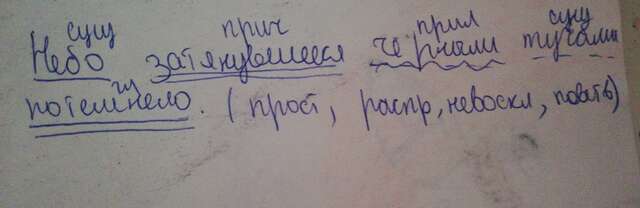 сущ прич прил сущ
Небо затянувшееся чёрными тучами
гл
потемнело. (прост, распр, невоскл, повеств)